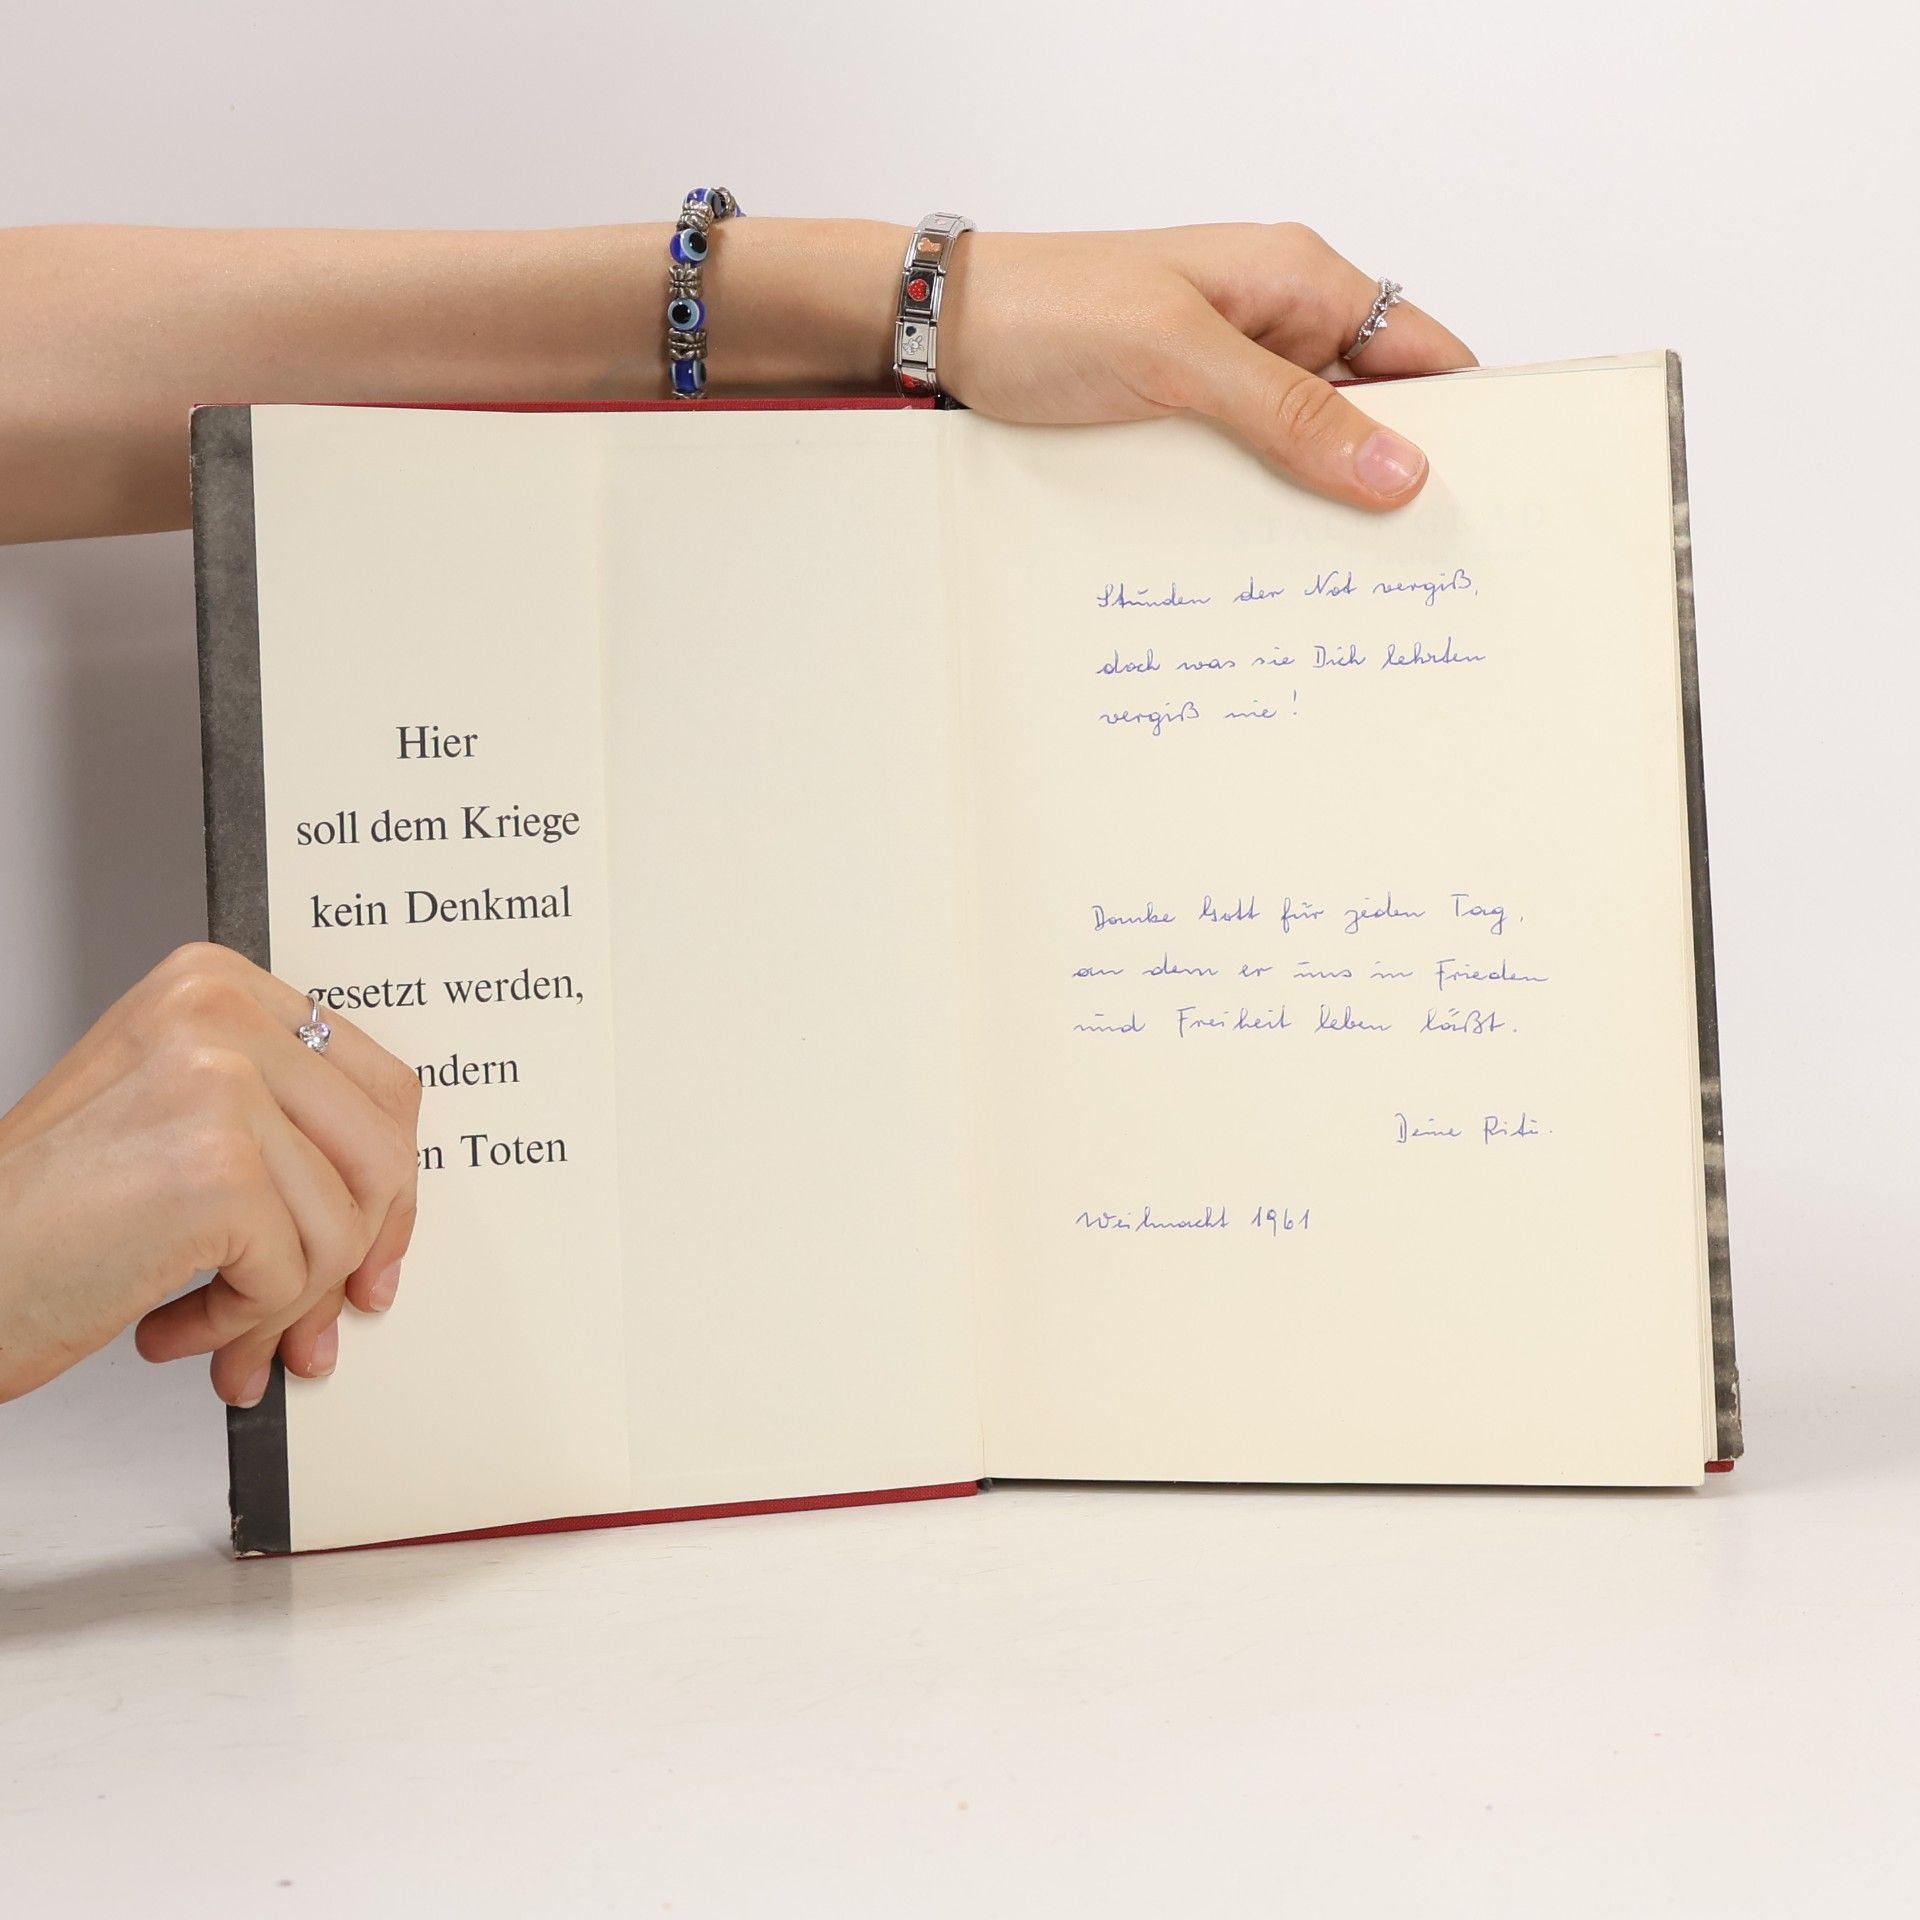 Hier
soll dem Kriege
kein Denkmal
gesetzt werden,
ndern
en Toten
STALINGRAD
Stunden der Not vergiß,
doch was sie Dich lehrten
vergiß nie!
Danke Gott für jeden Tag,
an dem er uns in Frieden
und Freiheit leben läßt.
Deine Riti.
Weihnacht 1961